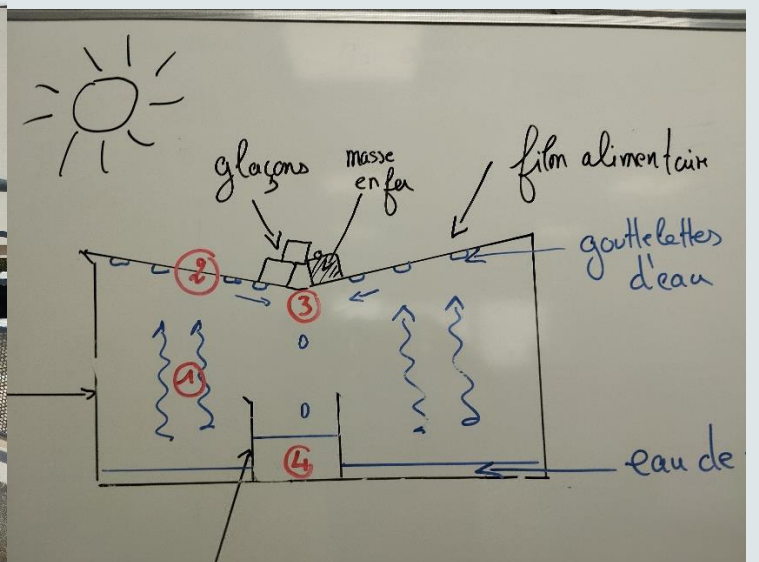 glaçons
masse
en fer
film alimentaire
gouttelettes
d'eau
2
3
1
4
eau de